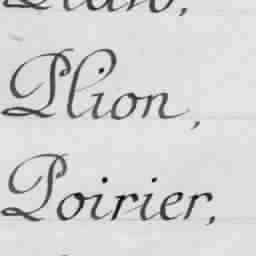 Plion,
Poirier,